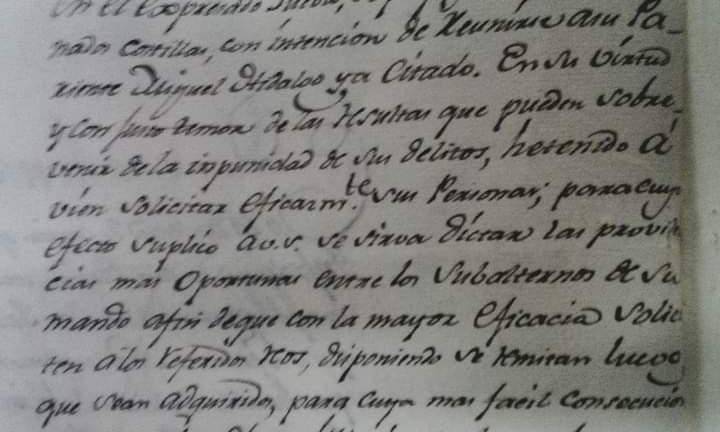 en el expresado
nados Costillas, con intención de Reunirse a su Pa-
riente Miguel Hidalgo ya Citado. En su virtud
y con justo temor de las resultas que pueden sobre-
venir de la inpunidad de sus delitos, he tenido á
vien solicitar eficazm.te sus Personas; para cuyo
efecto suplico a v.s. se sirva dictar las providen
cias mas oportunas entre los Subalternos de su
mando afin de que con la mayor eficacia solici
ten á los referidos reos, disponiendo se remitan luego
que sean adquiridos, para cuya mas facil consecución